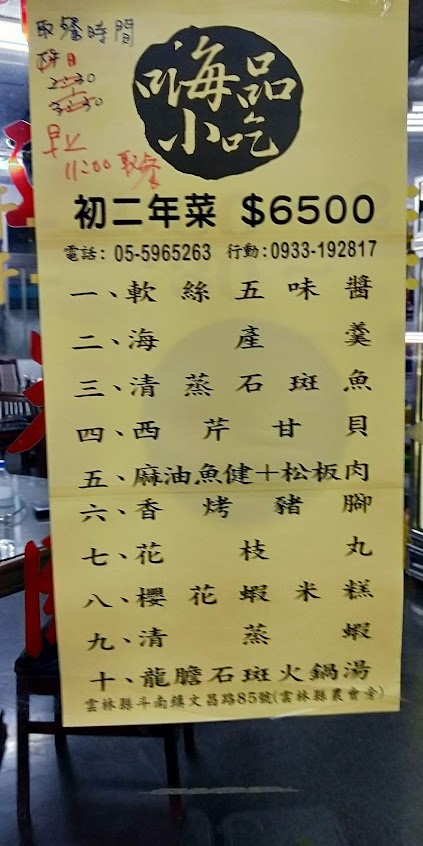 取餐時間
嗨品
小吃
早上
11:00 取餐
初二年菜 $6500
電話: 05-5965263 行動:0933-192817
一、軟絲五味醬
二、海產羹
三、清蒸石斑魚
四、西芹甘貝
五、麻油魚健+松板肉
六、香烤豬腳
七、花枝丸
八、櫻花蝦米糕
九、清蒸蝦
十、龍膽石斑火鍋湯
雲林縣斗南鎮文昌路85號(雲林縣農會旁)